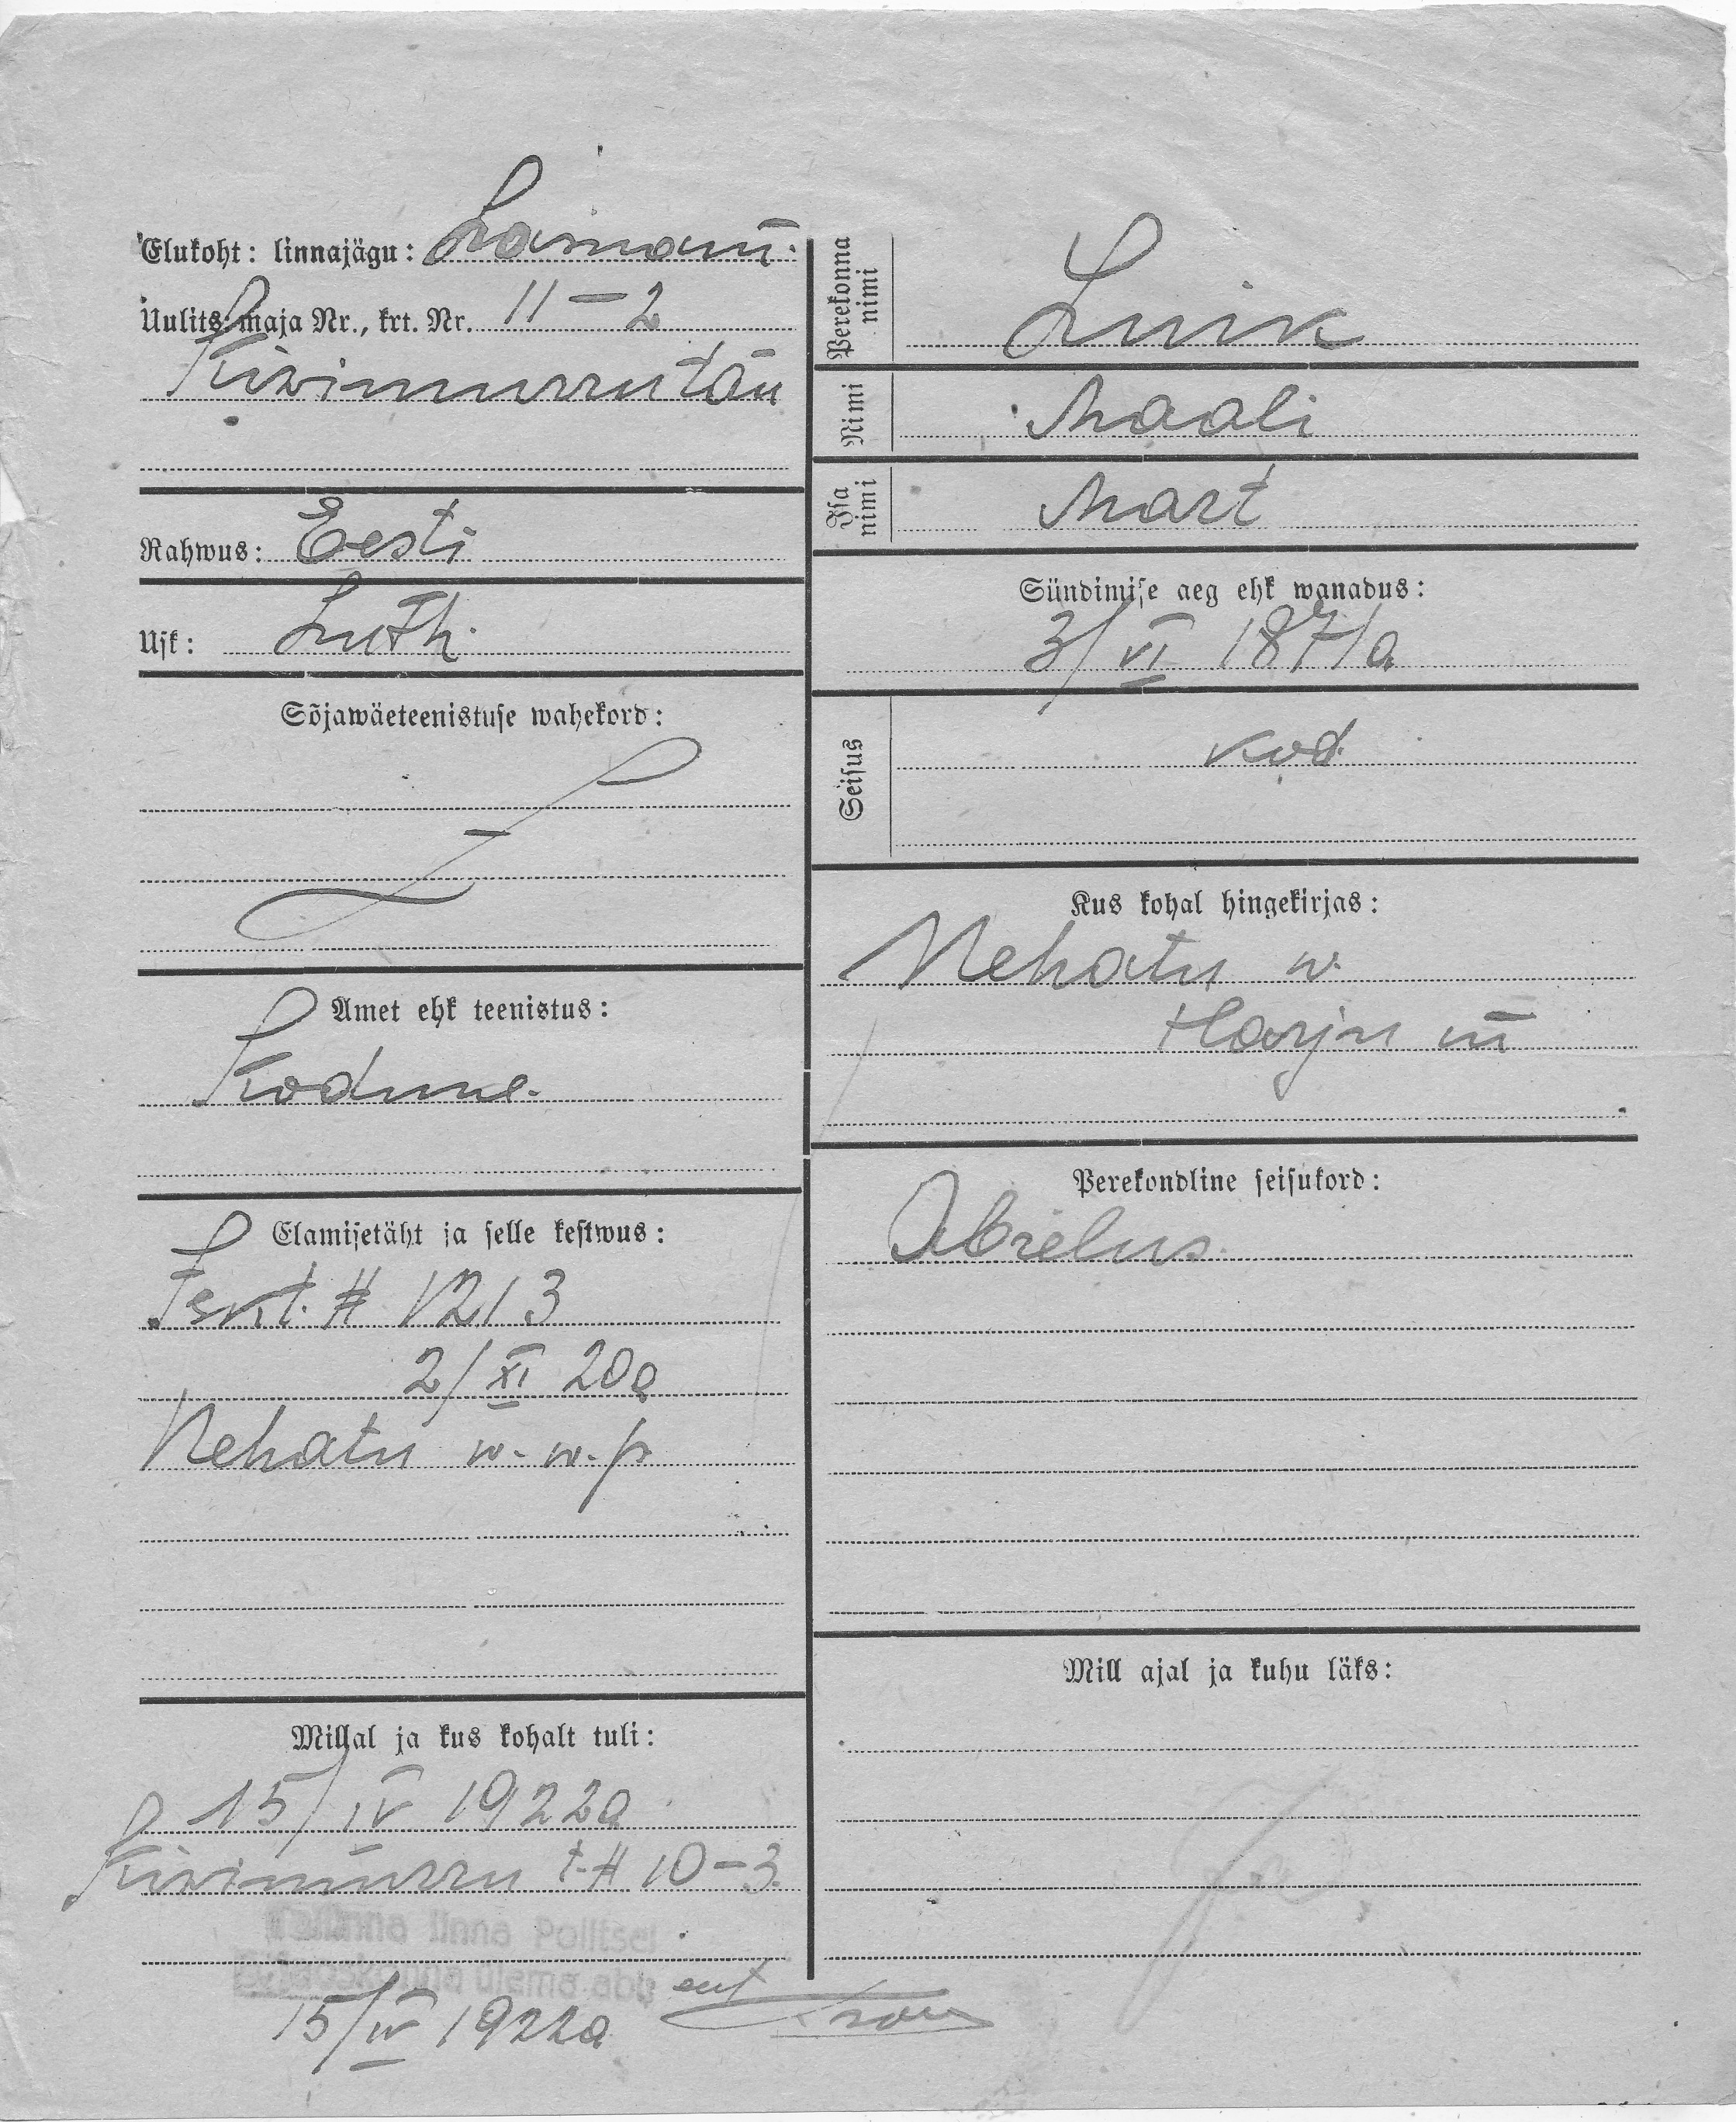 Elukoht: linnajägu: Lasnam.
Uulits, maja Nr., krt. Nr. 11-2
Kiwimurru tän
Rahwus: Eesti
Usk: Luth.
Sõjawäeteenistuse wahekord:
Amet ehk teenistus:
Kodune.
Elamisetäht ja selle kestwus:
# 1213
2/XI 20a
Nehatu w. w. p
Millal ja kus kohalt tuli:
15/IV 1922a
Kiwimurru t. # 10-3.
Tallinna linna Politsei
ülema abi
15/IV 1922a
Perekonna nimi
Luik
Nimi
Maali
Isa nimi
Mart
Sündimise aeg ehk wanadus:
3/VI 1871a
Seisus
kod.
Kus kohal hingekirjas:
Nehatu w.
Harju m
Perekondline seisukord:
Abielus.
Mill ajal ja kuhu läks: